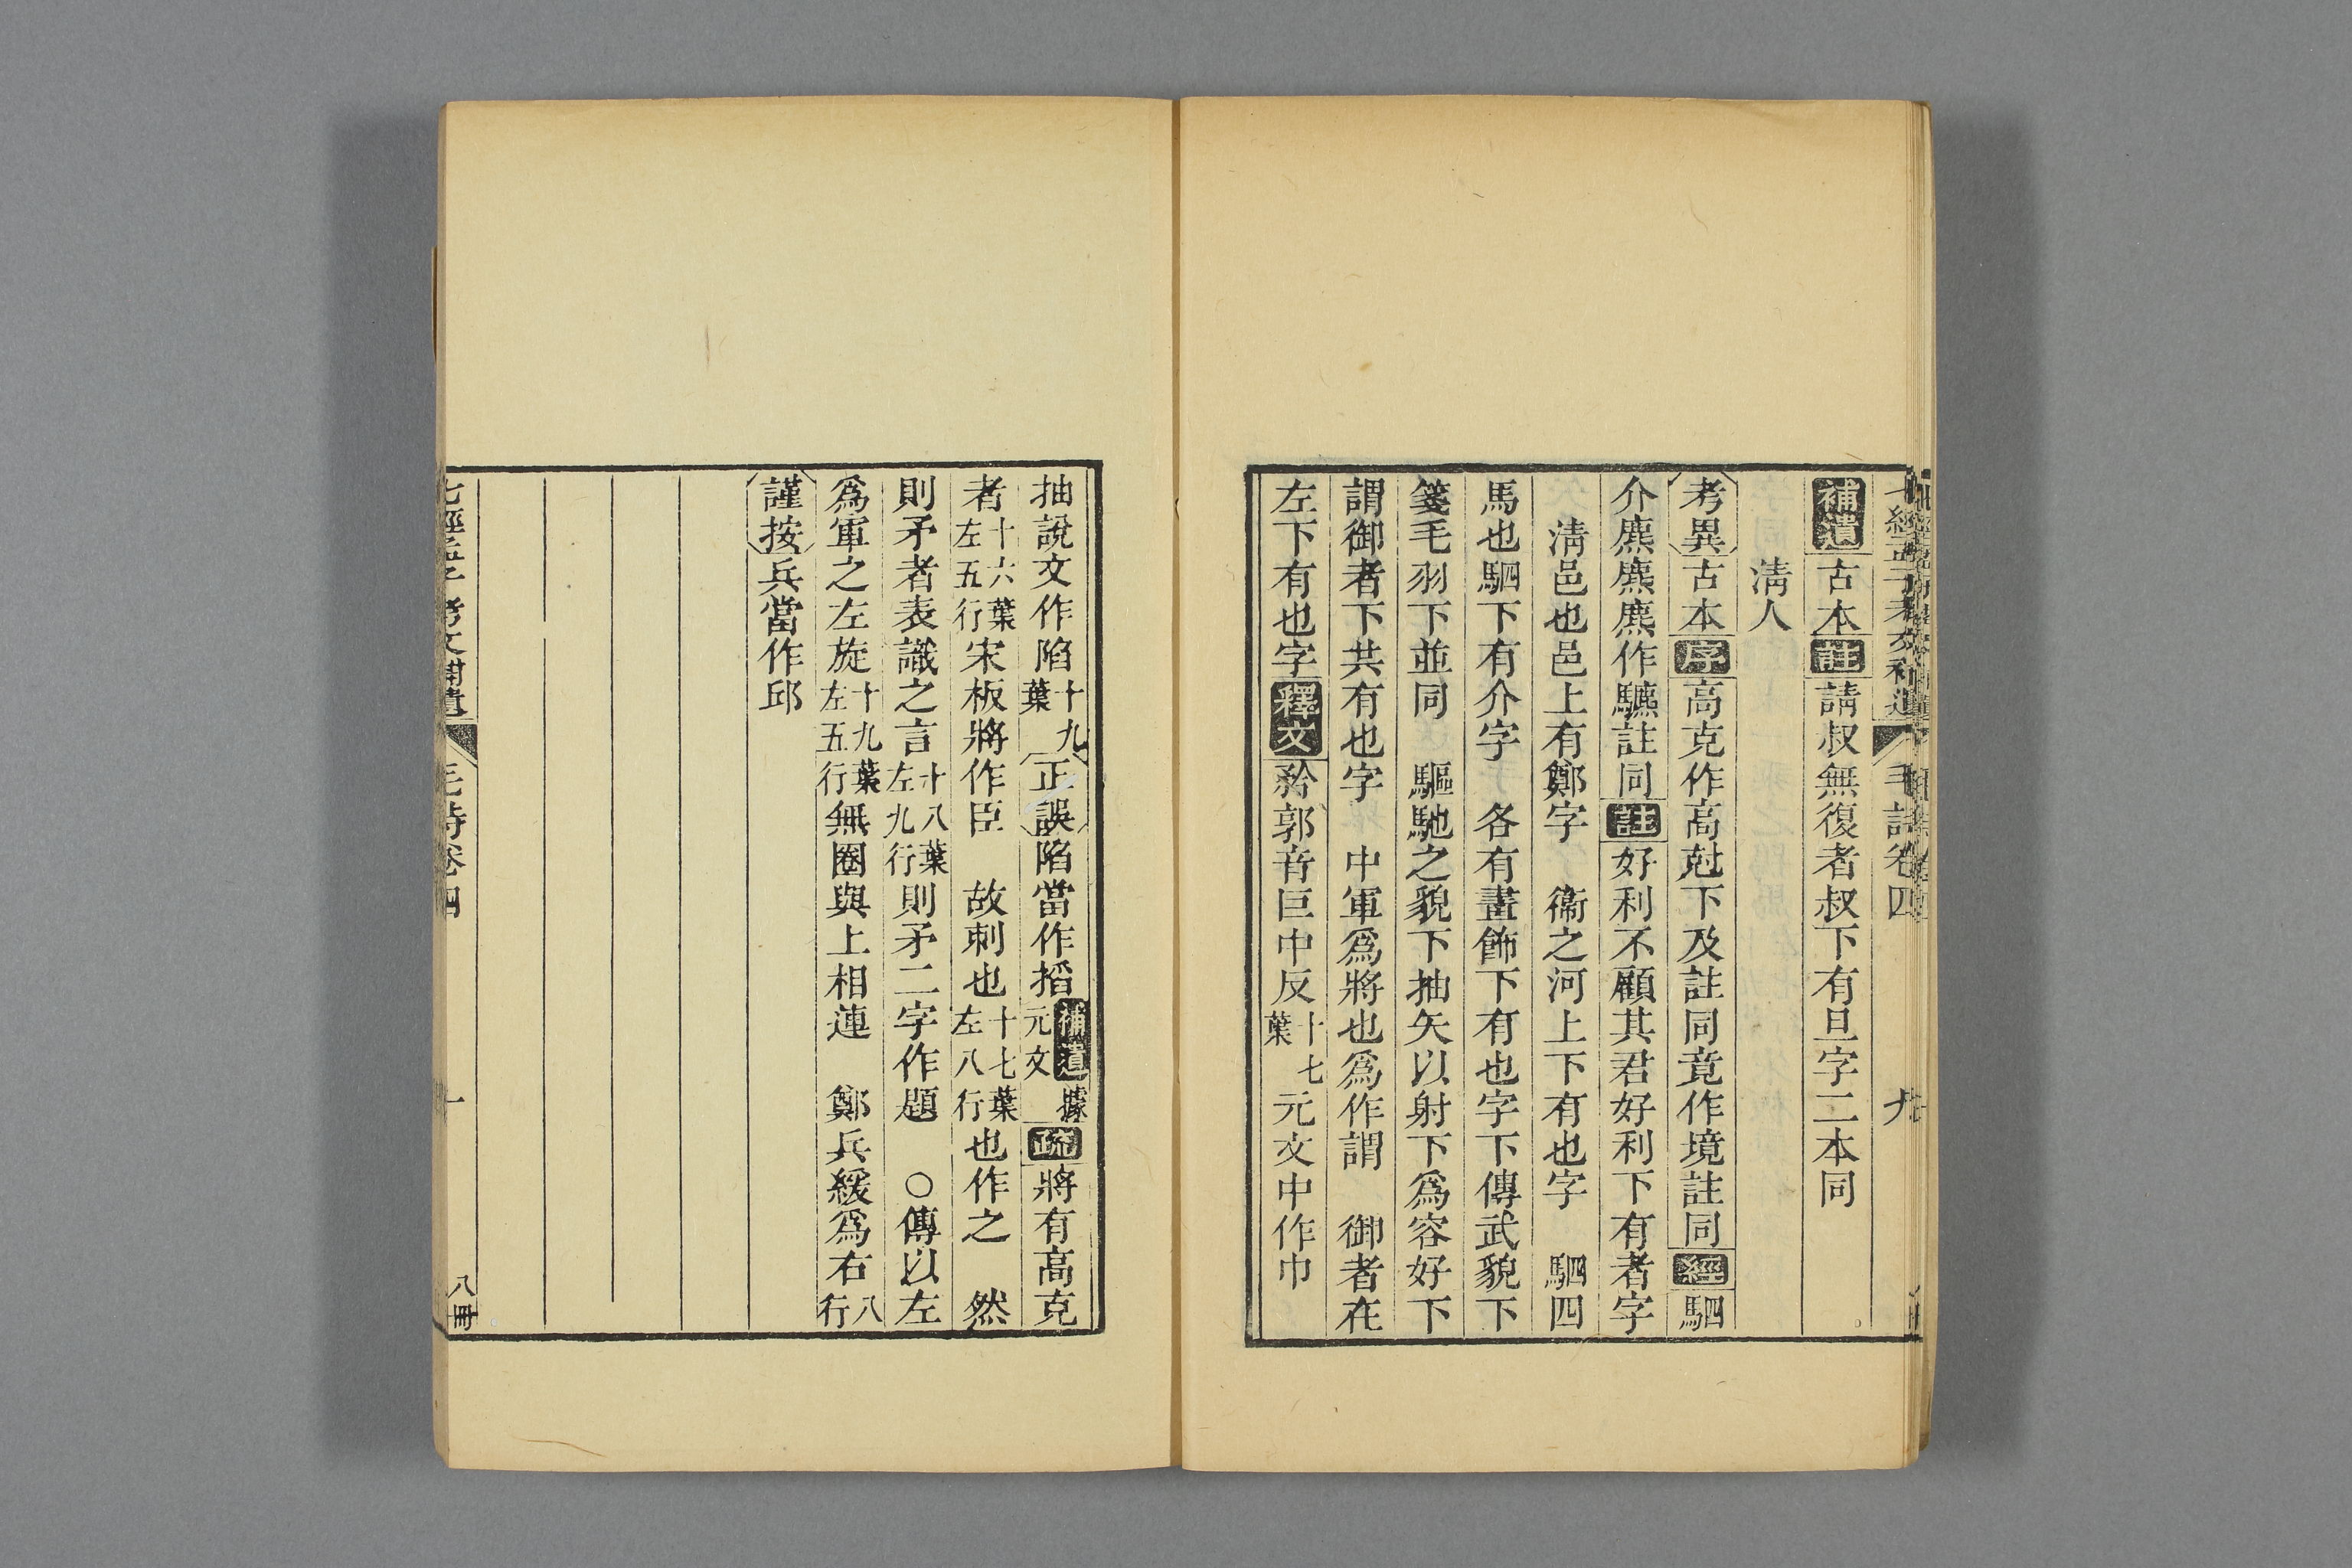 補遺古本註請叔無復者叔下有旦字二本同
清人
考異古本序高克作高尅下及註同竟作境註同經駟
介麃麃麃作驫註同註好利不顧其君好利下有者字
清邑也邑上有鄭字　衞之河上下有也字　駟四
馬也駟下有介字　各有畫飾下有也字下傳武貌下
箋毛羽下並同　驅馳之貌下抽矢以射下爲容好下
謂御者下共有也字　中軍爲將也爲作謂　御者在
左下有也字釋文矜郭音巨巾反十七葉元文中作巾
抽說文作陷十九葉正誤陷當作搯補遺據元文疏將有高克
者十六葉左五行宋板將作臣　故刺也十七葉左八行也作之　然
則矛者表識之言十八葉左九行則矛二字作題　○傳以左
爲軍之左旋十九葉左五行無圈與上相連　鄭兵緩爲右八行
謹按兵當作邱
毛詩卷四
八冊